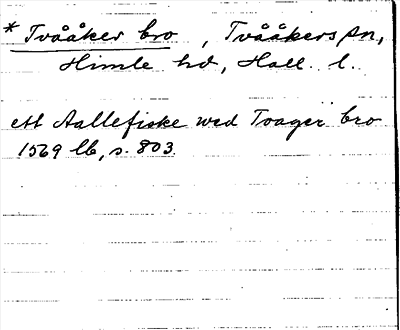 * Tvååker bro, Tvååkers sn,
Himle hd, Hall. l.
ett Aallefiske wed Toager bro
1569 lb, s. 803.